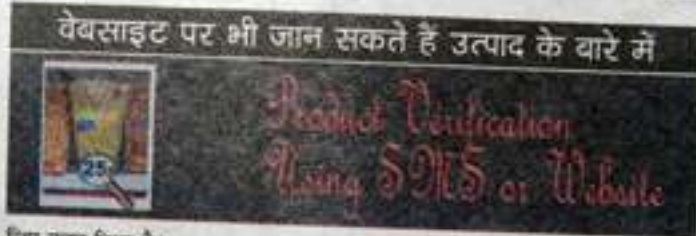 वेबसाइट पर भी जान सकते हैं उत्पाद के बारे में
Product Verification
Using SMS or Website
25